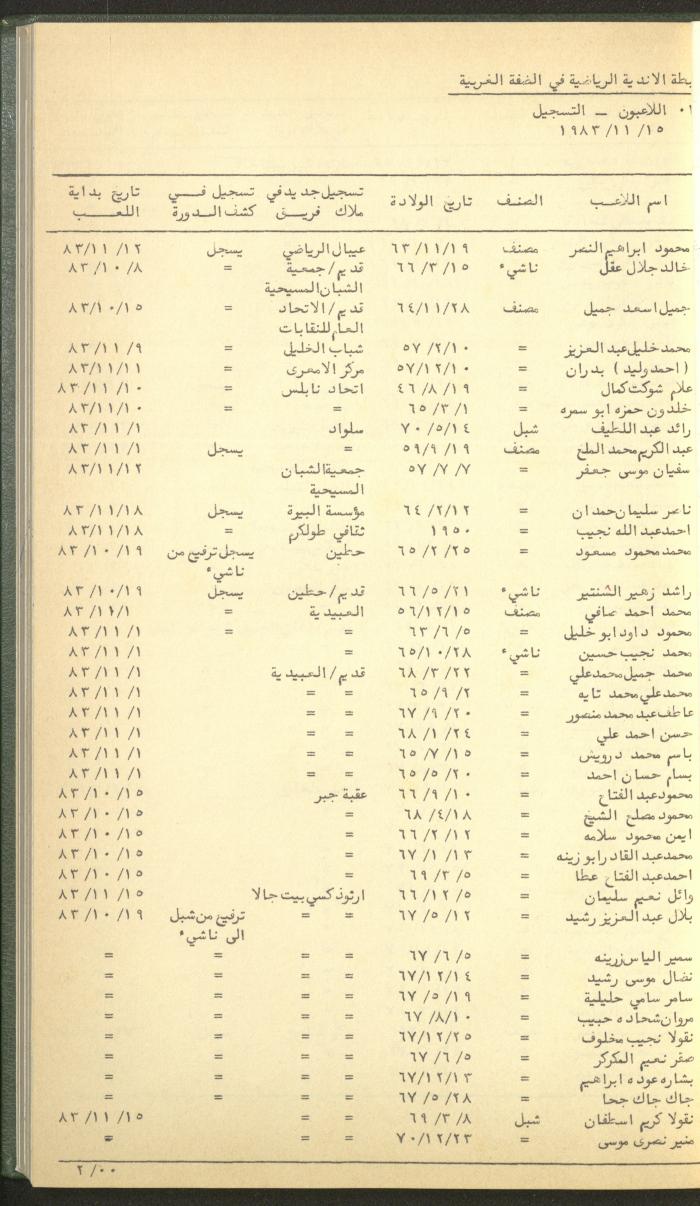 بطة الاندية الرياضية في الضفة الغربية
٠١ اللاعبون ــ التسجيل
١٩٨٣/١١/١٥
اسم اللاعب الصنف تاريخ الولادة تسجيل جديد في ملاك فريق تسجيل في كشف الدورة تاريخ بداية اللعب
محمود ابراهيم النصر مصنف ٦٣/١١/١٩ عيبال الرياضي يسجل ٨٣/١١/١٢
خالد جلال عقل ناشيء ٦٦/٣/١٥ قديم/جمعية = ٨٣/١٠/٨
الشبان المسيحية
جميل اسعد جميل مصنف ٦٤/١١/٢٨ قديم/الاتحاد = ٨٣/١٠/١٥
العام للنقابات
محمد خليل عبد العزيز = ٥٧/٢/١٠ شباب الخليل = ٨٣/١١/٩
(احمد وليد) بدران = ٥٧/١٢/١٠ مركز الامعرى = ٨٣/١١/١١
علام شوكت كمال = ٤٦/٨/١٩ اتحاد نابلس = ٨٣/١١/١٠
خلدون حمزه ابو سمره = ٦٥/٣/١ = = ٨٣/١١/١٠
رائد عبد اللطيف شبل ٧٠/٥/١٤ سلواد ٨٣/١١/١
عبد الكريم محمد الملح مصنف ٥٩/٩/١٩ = يسجل ٨٣/١١/١
سفيان موسى جعفر = ٥٧/٧/٧ جمعية الشبان ٨٣/١١/١٢
المسيحية
ناصر سليمان حمدان = ٦٤/٢/١٢ مؤسسة البيرة يسجل ٨٣/١١/١٨
احمد عبد الله نجيب = ١٩٥٠ ثقافي طولكرم = ٨٣/١١/١٨
محمد محمود مسعود = ٦٥/٢/٢٥ حطين يسجل ترفيع من ٨٣/١٠/١٩
ناشيء
راشد زهير الشنتير ناشيء ٦٦/٥/٢١ قديم/حطين يسجل ٨٣/١٠/١٩
محمد احمد صافي مصنف ٥٦/١٢/١٥ العبيدية = ٨٣/١١/١
محمود داود ابو خليل = ٦٣/٦/٥ = = ٨٣/١١/١
محمد نجيب حسين ناشيء ٦٥/١٠/٢٨ = ٨٣/١١/١
محمد جميل محمد علي = ٦٨/٣/٢٢ قديم/العبيدية ٨٣/١١/١
محمد علي محمد تايه = ٦٥/٩/٢ = = ٨٣/١١/١
عاطف عبد محمد منصور = ٦٧/٩/٢٠ = = ٨٣/١١/١
حسن احمد علي = ٦٨/١/٢٤ = = ٨٣/١١/١
باسم محمد درويش = ٦٥/٧/١٥ = = ٨٣/١١/١
بسام حسان احمد = ٦٥/٥/٢٠ = = ٨٣/١١/١
محمود عبد الفتاح = ٦٦/٩/١٠ عقبة جبر ٨٣/١٠/١٥
محمود مصلح الشيخ = ٦٨/٤/١٨ = ٨٣/١٠/١٥
ايمن محمود سلامه = ٦٦/٢/١٢ = ٨٣/١٠/١٥
محمد عبد القادر ابو زينه = ٦٧/١/١٣ = ٨٣/١٠/١٥
احمد عبد الفتاح عطا = ٦٩/٣/٥ = ٨٣/١٠/١٥
وائل نعيم سليمان = ٦٦/١٢/٥ ارثوذكسي بيت جالا ٨٣/١١/١٥
بلال عبد العزيز رشيد = ٦٧/٥/١٢ = = ترفيع من شبل ٨٣/١٠/١٩
الى ناشيء
سمير الياس زرينه = ٦٧/٦/٥ = = = =
نضال موسى رشيد = ٦٧/١٢/١٤ = = = =
سامر سامي حليلية = ٦٧/٥/١٩ = = = =
مروان شحاده حبيب = ٦٧/٨/١٠ = = = =
نقولا نجيب مخلوف = ٦٧/١٢/٢٥ = = = =
صقر نعيم المكركر = ٦٧/٦/٥ = = = =
بشاره عوده ابراهيم = ٦٧/١٢/١٣ = = = =
جاك جاك جحا = ٦٧/٥/٢٨ = = = =
نقولا كريم اسطفان شبل ٦٩/٣/٨ = = ٨٣/١١/١٥
منير نصرى موسى = ٧٠/١٢/٢٣ = = =
٢/٠٠